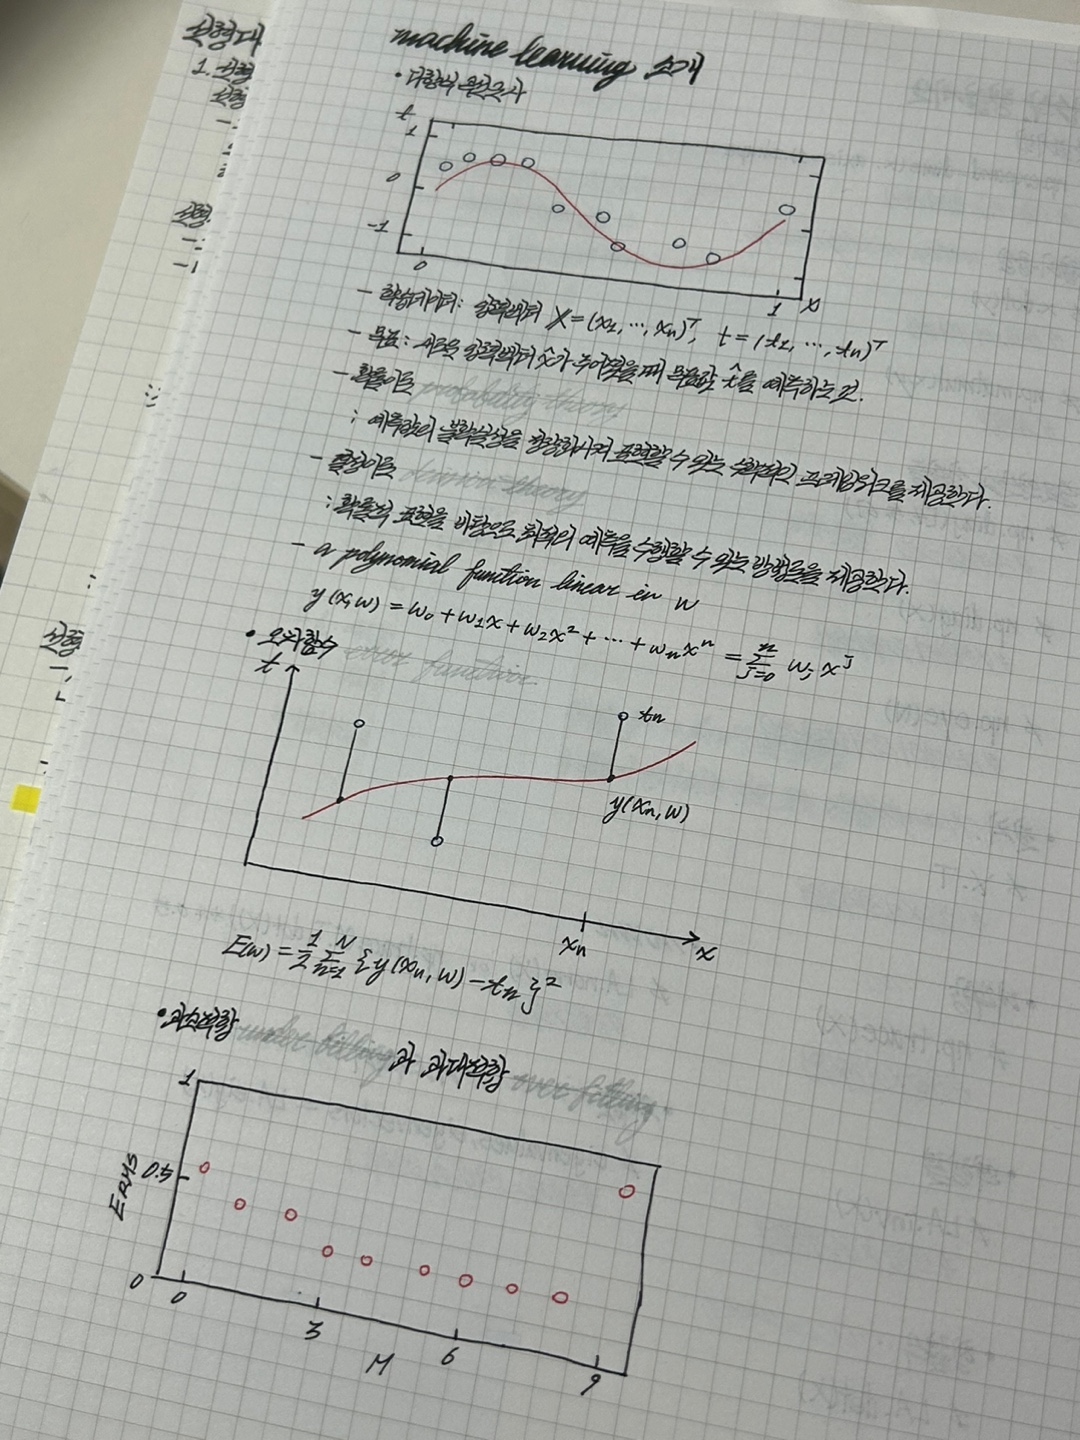 machine learning 소개
• 다항식 곡선근사
t
1
0
-1
0
1
x
- 학습데이터: 입력벡터 X = (x1, ⋯, xn)ᵀ, t = (t1, ⋯, tn)ᵀ
- 목표: 새로운 입력벡터 x̂가 주어졌을 때 목표값 t̂를 예측하는 것.
- 확률이론 probability theory
: 예측값의 불확실성을 정량화시켜 표현할 수 있는 수학적인 프레임워크를 제공한다.
- 결정이론 decision theory
: 확률적 표현을 바탕으로 최적의 예측을 수행할 수 있는 방법론을 제공한다.
- a polynomial function linear in w
y(x, w) = w₀ + w₁x + w₂x² + ⋯ + wₙxⁿ = Σⁿⱼ₌₀ wⱼ xʲ
• 오차함수 error function.
t
tn
y(xn, w)
xn
x
E(w) = 1/2 Σᴺₙ₌₁ {y(xn, w) - tn}²
• 과소적합 under fitting 과 과대적합 over fitting
1
0.5
ERMS
0
0
3
6
9
M
선형대
1. 선형
선형
선형